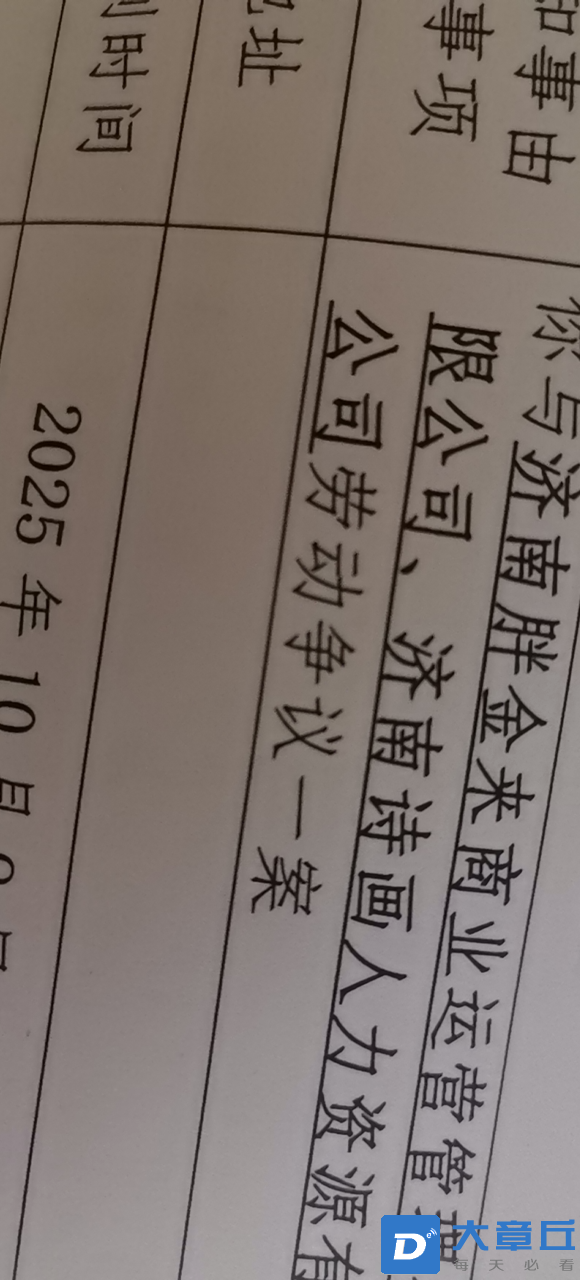 知事由
事项
你与济南胖金来商业运营管理
限公司、济南诗画人力资源有
公司劳动争议一案
地址
到时间
2025 年 10 月 9 日
大章丘
每天必看